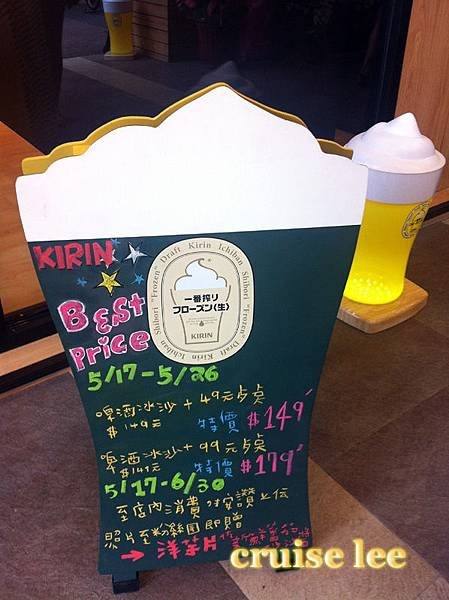 KIRIN
Best
Price
Kirin Ichiban Shibori "Frozen" Draft Kirin Ichiban Shibori "Frozen" Draft
一番搾り
フローズン〈生〉
KIRIN
5/17-5/26
啤酒冰沙 + 49元点桌
$149元 特價 $149
啤酒冰沙 + 99元点桌
$149元 特價 $179
5/17-6/30
至店內消費 按讚上伝
照片至粉絲團即贈
→ 洋芋片
cruise lee